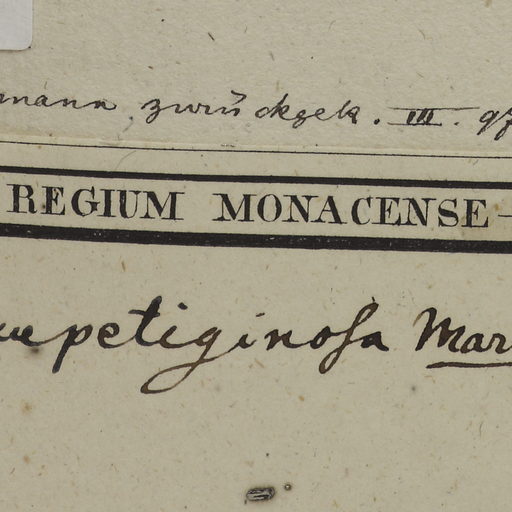 mann zurückgek. III. 97
REGIUM MONACENSE
petiginosa Mar